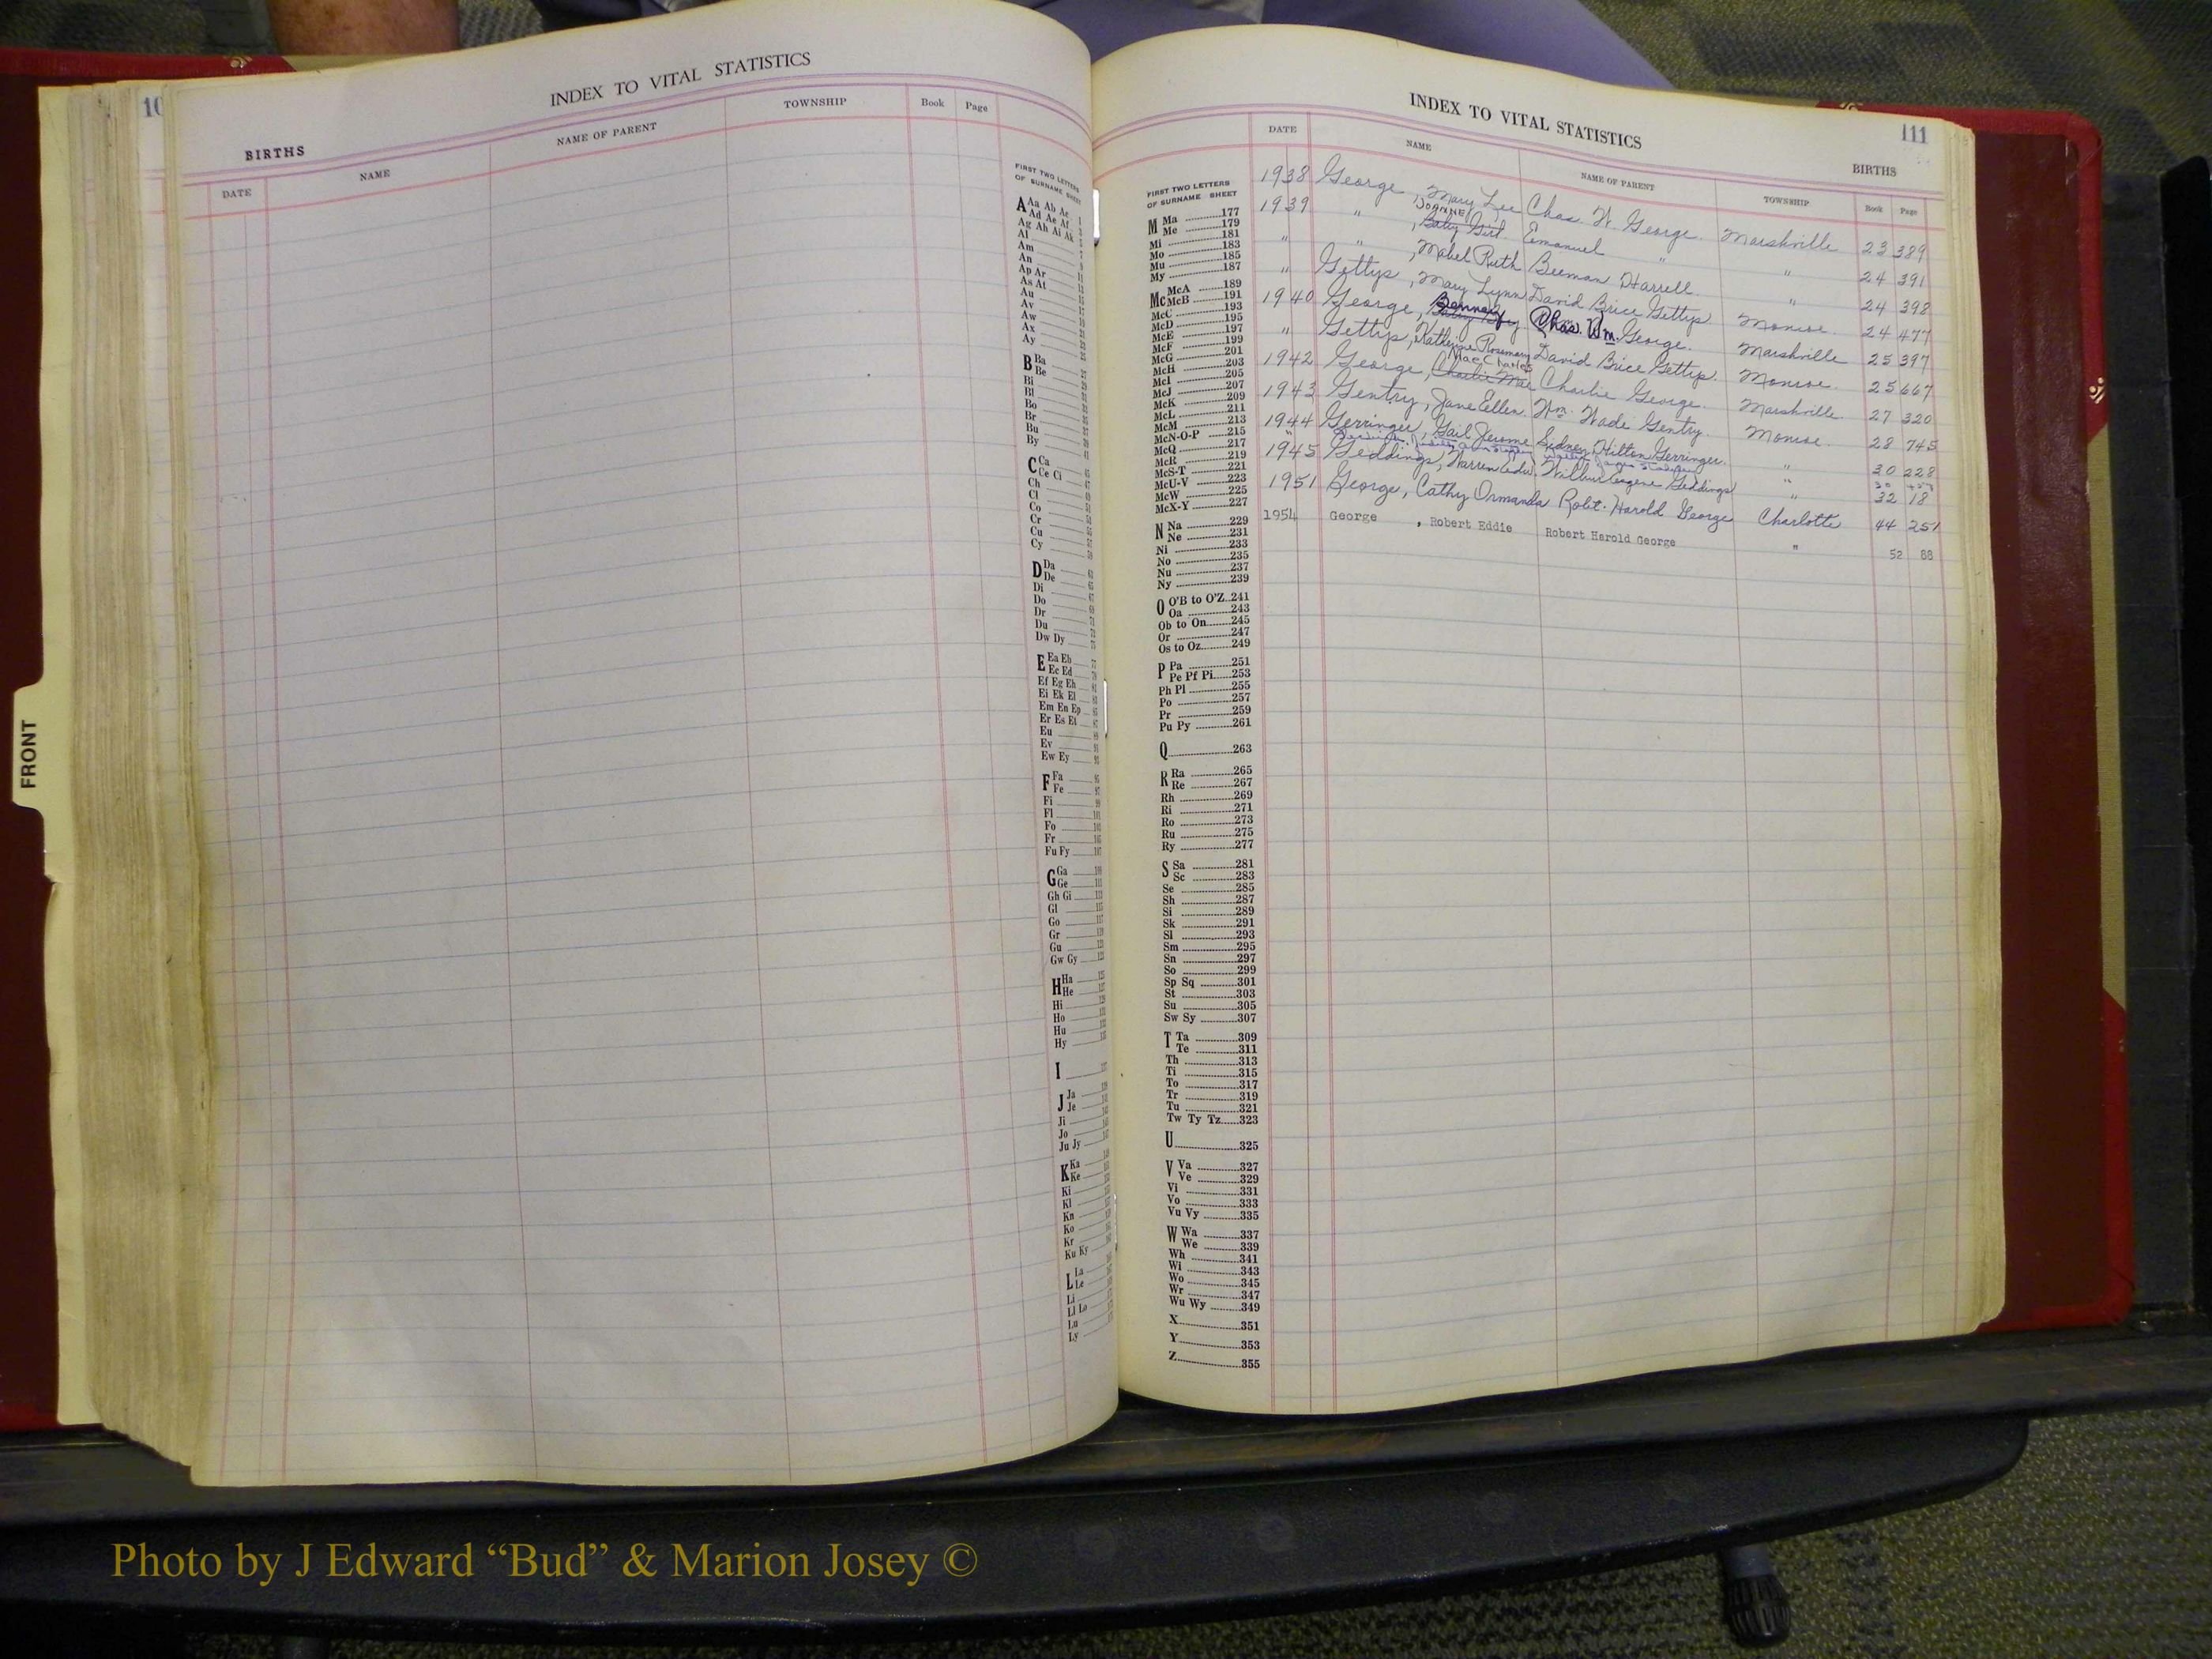 10
INDEX TO VITAL STATISTICS
BIRTHS
DATE NAME NAME OF PARENT TOWNSHIP Book Page
FIRST TWO LETTERS
OF SURNAME SHEET
A Aa Ab Ac
Ad Ae Af
Ag Ah Ai Ak
Al
Am
An
Ap Ar
As At
Au
Av
Aw
Ax
Ay
B Ba
Be
Bi
Bl
Bo
Br
Bu
By
C Ca
Ce Ci
Ch
Cl
Co
Cr
Cu
Cy
D Da
De
Di
Do
Dr
Du
Dw Dy
E Ea Eb
Ec Ed
Ef Eg Eh
Ei Ek El
Em En Ep
Er Es Et
Eu
Ev
Ew Ey
F Fa
Fe
Fi
Fl
Fo
Fr
Fu Fy
G Ga
Ge
Gh Gi
Gl
Go
Gr
Gu
Gw Gy
H Ha
He
Hi
Ho
Hu
Hy
I
J Ja
Je
Ji
Jo
Ju Jy
K Ka
Ke
Ki
Kl
Kn
Ko
Kr
Ku Ky
L La
Le
Li
Ll Lo
Lu
Ly
FRONT
INDEX TO VITAL STATISTICS
111
BIRTHS
DATE NAME NAME OF PARENT TOWNSHIP Book Page
FIRST TWO LETTERS
OF SURNAME SHEET
M Ma 177
Me 179
Mi 181
Mo 183
Mu 185
My 187
Mc McA 189
McB 191
McC 193
McD 195
McE 197
McF 199
McG 201
McH 203
McI 205
McJ 207
McK 209
McL 211
McM 213
McN-O-P 215
McQ 217
McR 219
McS-T 221
McU-V 223
McW 225
McX-Y 227
N Na 229
Ne 231
Ni 233
No 235
Nu 237
Ny 239
O O'B to O'Z 241
Oa 243
Ob to On 245
Or 247
Os to Oz 249
P Pa 251
Pe Pf Pi 253
Ph Pl 255
Po 257
Pr 259
Pu Py 261
Q 263
R Ra 265
Re 267
Rh 269
Ri 271
Ro 273
Ru 275
Ry 277
S Sa 281
Sc 283
Se 285
Sh 287
Si 289
Sk 291
Sl 293
Sm 295
Sn 297
So 299
Sp Sq 301
St 303
Su 305
Sw Sy 307
T Ta 309
Te 311
Th 313
Ti 315
To 317
Tr 319
Tu 321
Tw Ty Tz 323
U 325
V Va 327
Ve 329
Vi 331
Vo 333
Vu Vy 335
W Wa 337
We 339
Wh 341
Wi 343
Wo 345
Wr 347
Wu Wy 349
X 351
Y 353
Z 355
1938 George, Mary Lee Chas. W. George. Marshville 23 389
1939 " , Joanne Baby Girl Emanuel " " 24 391
" " , Mabel Ruth Beeman Harrell " 24 398
" Gettys, Mary Lynn David Brice Gettys Monroe. 24 477
1940 George, Chas. Wm. George. Marshville 25 397
" Gettys, Katherine Rosemary David Brice Gettys. Monroe. 25 667
1942 George, Mae Charles Charlie Mae Charlie George. Marshville 27 320
1943 Gentry, Jane Ellen Wm. Wade Gentry. Monroe. 28 745
1944 Gerringer, Gail Jerome Sidney Hilton Gerringer. " 30 228
1945 Geddings, Warren Edw. Wilbur Eugene Geddings " 32 18
1951 George, Cathy Ormanda Robt. Harold George Charlotte 44 251
1954 George , Robert Eddie Robert Harold George " 52 88
Photo by J Edward “Bud” & Marion Josey ©